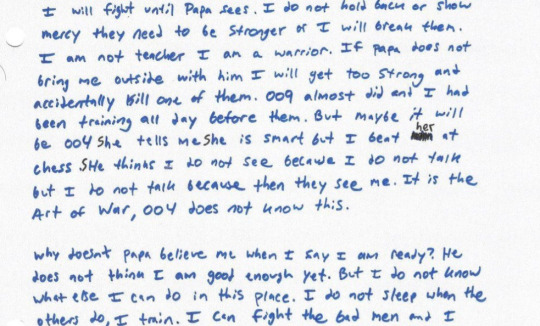 I will fight until Papa sees. I do not hold back or show
mercy they need to be stronger or I will break them.
I am not teacher I am a warrior. If papa does not
bring me outside with him I will get too strong and
accidentally kill one of them. 009 almost did and I had
been training all day before them. But maybe it will
be 004 She tells me She is smart but I beat her at
chess SHe thinks I do not see because I do not talk
but I do not talk because then they see me. It is the
Art of War, 004 does not know this.
why doesnt papa believe me when I say I am ready? He
does not think I am good enough yet. But I do not know
what else I can do in this place. I do not sleep when the
others do, I train. I can fight the bad men and I